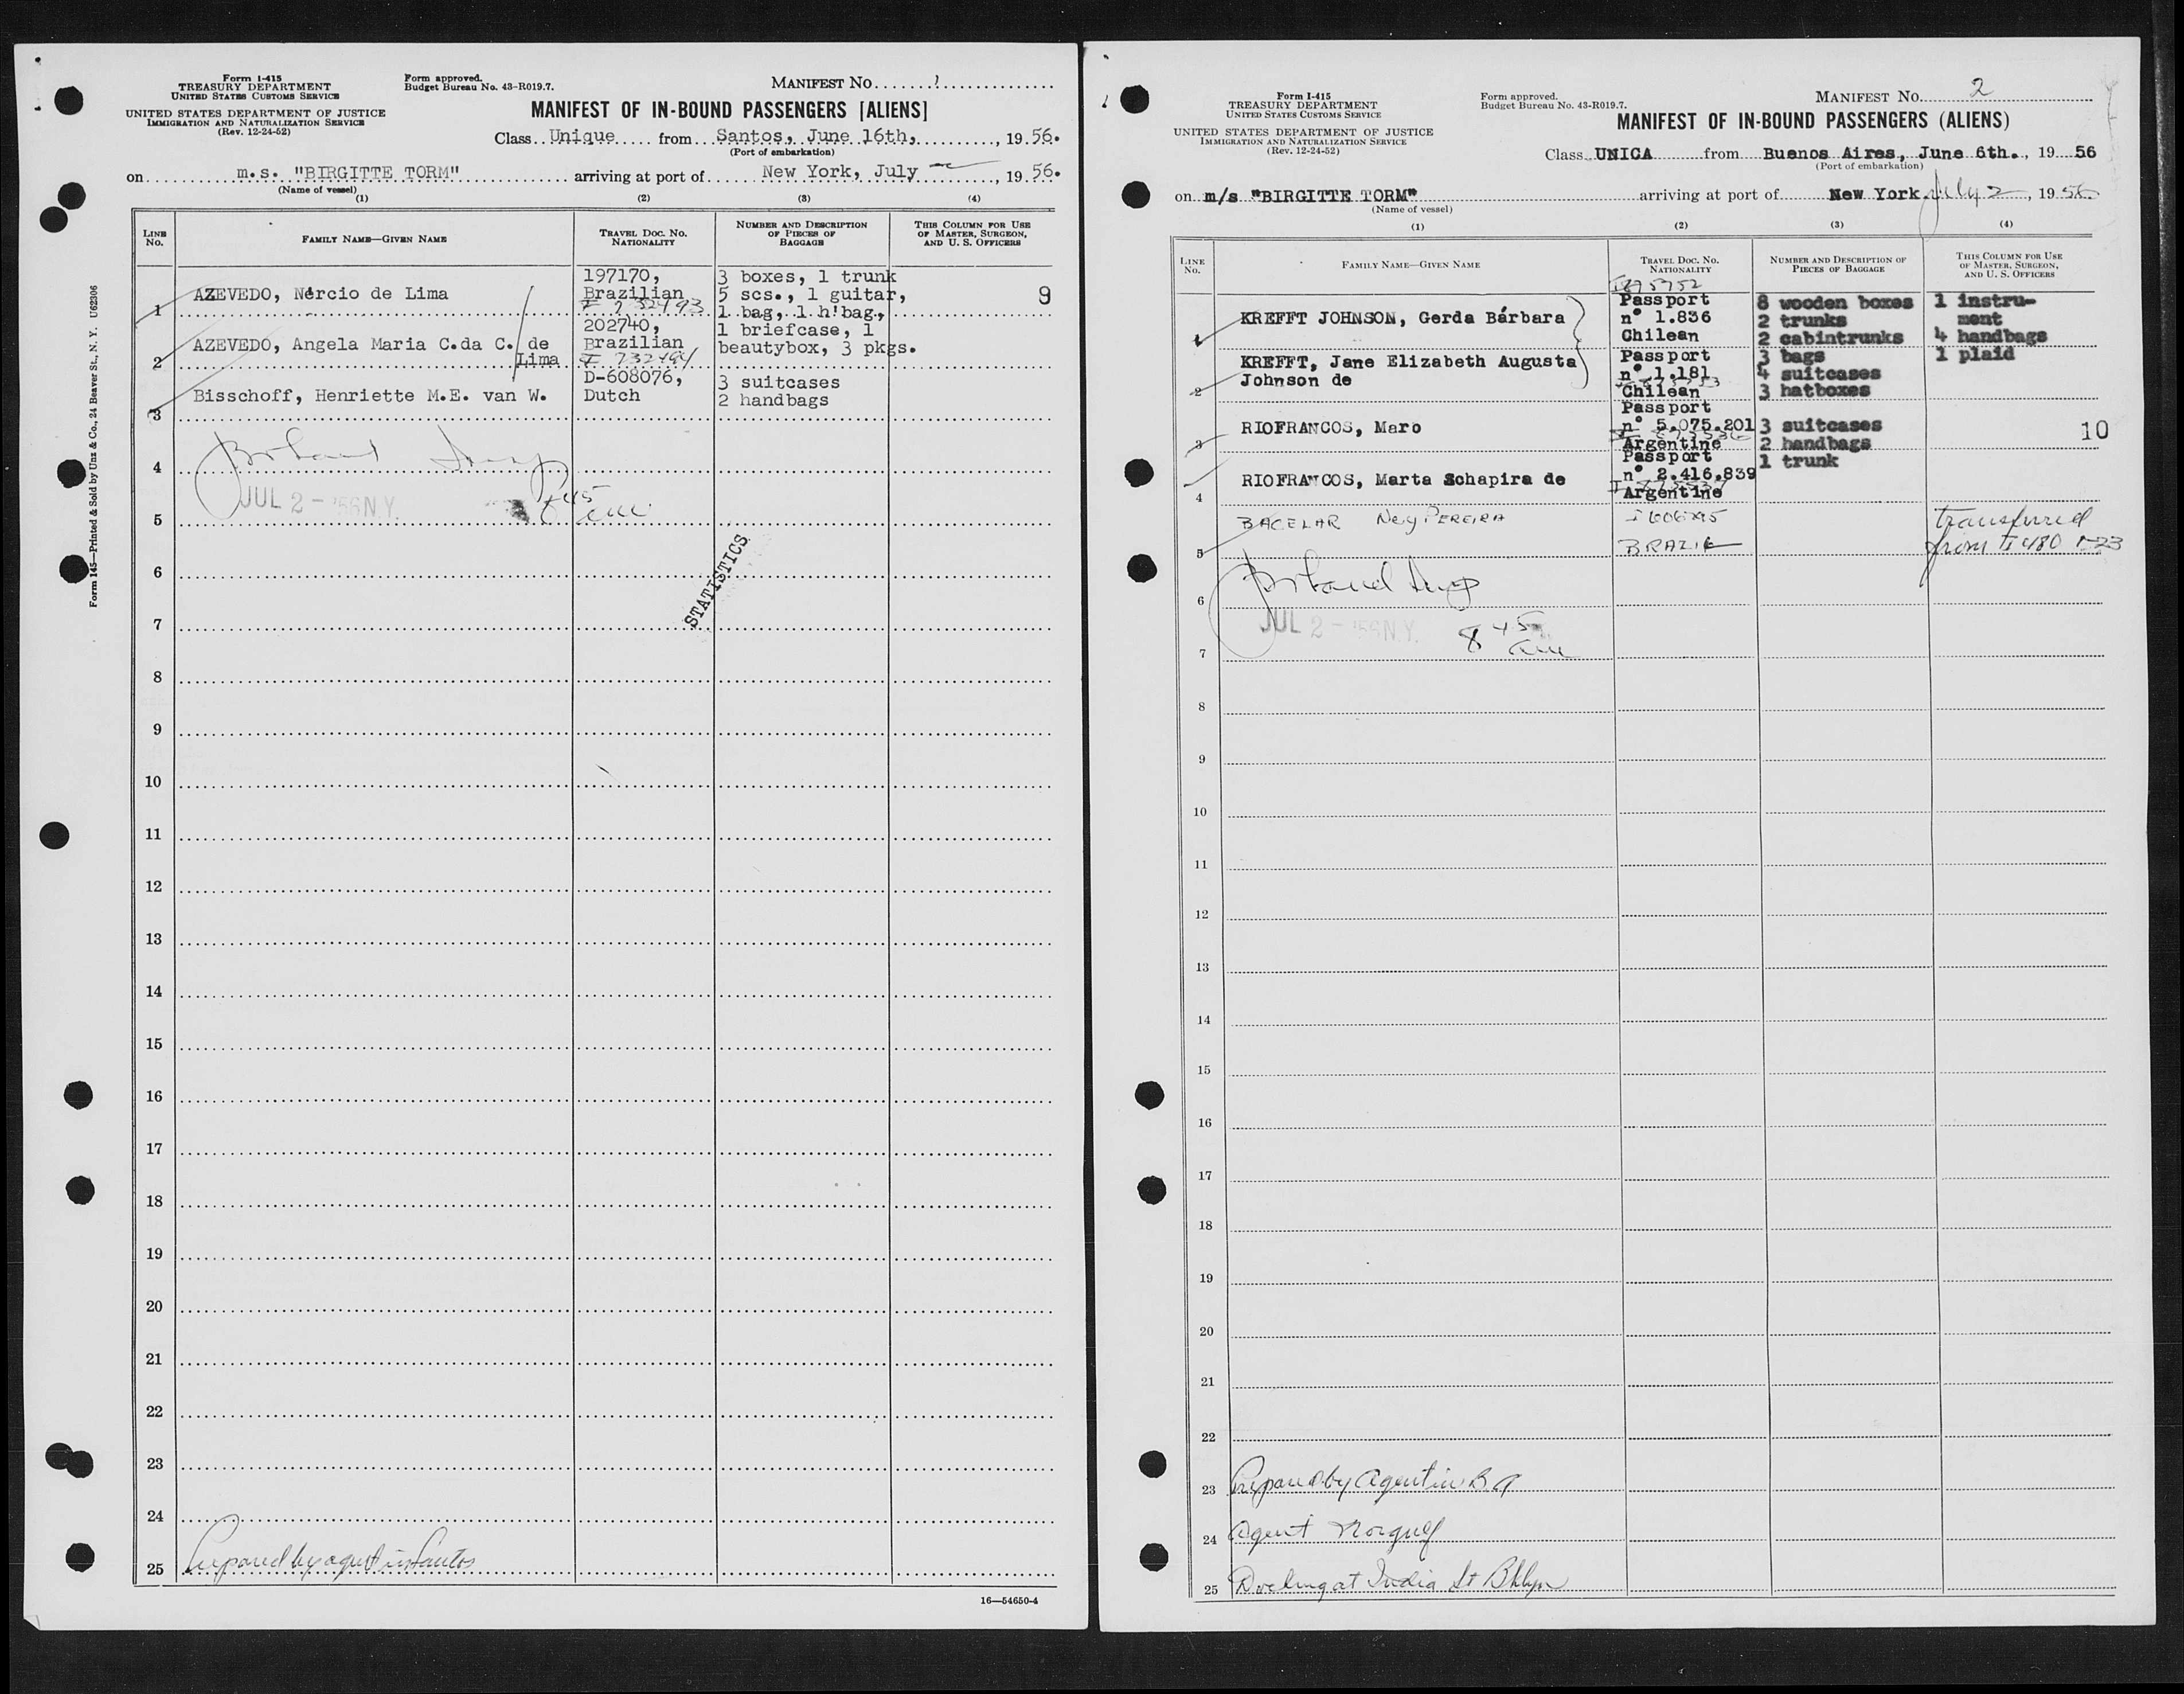 Form I-415
TREASURY DEPARTMENT
UNITED STATES CUSTOMS SERVICE
UNITED STATES DEPARTMENT OF JUSTICE
IMMIGRATION AND NATURALIZATION SERVICE
(Rev. 12-24-52)
Form approved.
Budget Bureau No. 43-R019.7.
MANIFEST No. 1
MANIFEST OF IN-BOUND PASSENGERS [ALIENS]
Class Unique from Santos, June 16th, , 19 56.
(Port of embarkation)
on m.s. "BIRGITTE TORM" arriving at port of New York, July , 19 56.
(Name of vessel)
(1) (2) (3) (4)
LINE No. FAMILY NAME—GIVEN NAME TRAVEL DOC. No. NATIONALITY NUMBER AND DESCRIPTION OF PIECES OF BAGGAGE THIS COLUMN FOR USE OF MASTER, SURGEON, AND U. S. OFFICERS
197170, 3 boxes, 1 trunk
1 AZEVEDO, Nércio de Lima Brazilian 5 scs., 1 guitar, 9
I 732493 1 bag, 1 h'bag.,
202740, 1 briefcase, 1
2 AZEVEDO, Angela Maria C.da C. de Lima Brazilian beautybox, 3 pkgs.
I 732494
D-608076, 3 suitcases
3 Bisschoff, Henriette M.E. van W. Dutch 2 handbags
4
JUL 2 - '56 N.Y. 8 45 am
5
STATISTICS
6
7
8
9
10
11
12
13
14
15
16
17
18
19
20
21
22
23
24
25 Prepared by agent in Santos
16—54650-4
Form 145—Printed & Sold by Unz & Co., 24 Beaver St., N. Y. U62306
Form I-415
TREASURY DEPARTMENT
UNITED STATES CUSTOMS SERVICE
UNITED STATES DEPARTMENT OF JUSTICE
IMMIGRATION AND NATURALIZATION SERVICE
(Rev. 12-24-52)
Form approved.
Budget Bureau No. 43-R019.7.
MANIFEST No. 2
MANIFEST OF IN-BOUND PASSENGERS (ALIENS)
Class UNICA from Buenos Aires, June 6th. , 19 56
(Port of embarkation)
on m/s "BIRGITTE TORM" arriving at port of New York July 2 , 19 56
(Name of vessel)
(1) (2) (3) (4)
LINE No. FAMILY NAME—GIVEN NAME TRAVEL DOC. No. NATIONALITY NUMBER AND DESCRIPTION OF PIECES OF BAGGAGE THIS COLUMN FOR USE OF MASTER, SURGEON, AND U. S. OFFICERS
Passport 8 wooden boxes 1 instru-
1 KREFFT JOHNSON, Gerda Bárbara n° 1.836 2 trunks ment
Chilean 2 cabintrunks 4 handbags
KREFFT, Jane Elizabeth Augusta Passport 3 bags 1 plaid
2 Johnson de n° 1.181 4 suitcases
Chilean 3 hatboxes
Passport
3 RIOFRANCOS, Maro n° 5.075.201 3 suitcases 10
Argentine 2 handbags
Passport 1 trunk
4 RIOFRANCOS, Marta Schapira de n° 2.416.839
Argentine
5 BACELAR Ney PEREIRA BRAZIL transferred from I 480
6
JUL 2 - '56 N.Y. 8 45 am
7
8
9
10
11
12
13
14
15
16
17
18
19
20
21
22
23 Prepared by Agent in B A
24 Agent
25 Docking at India St Bklyn